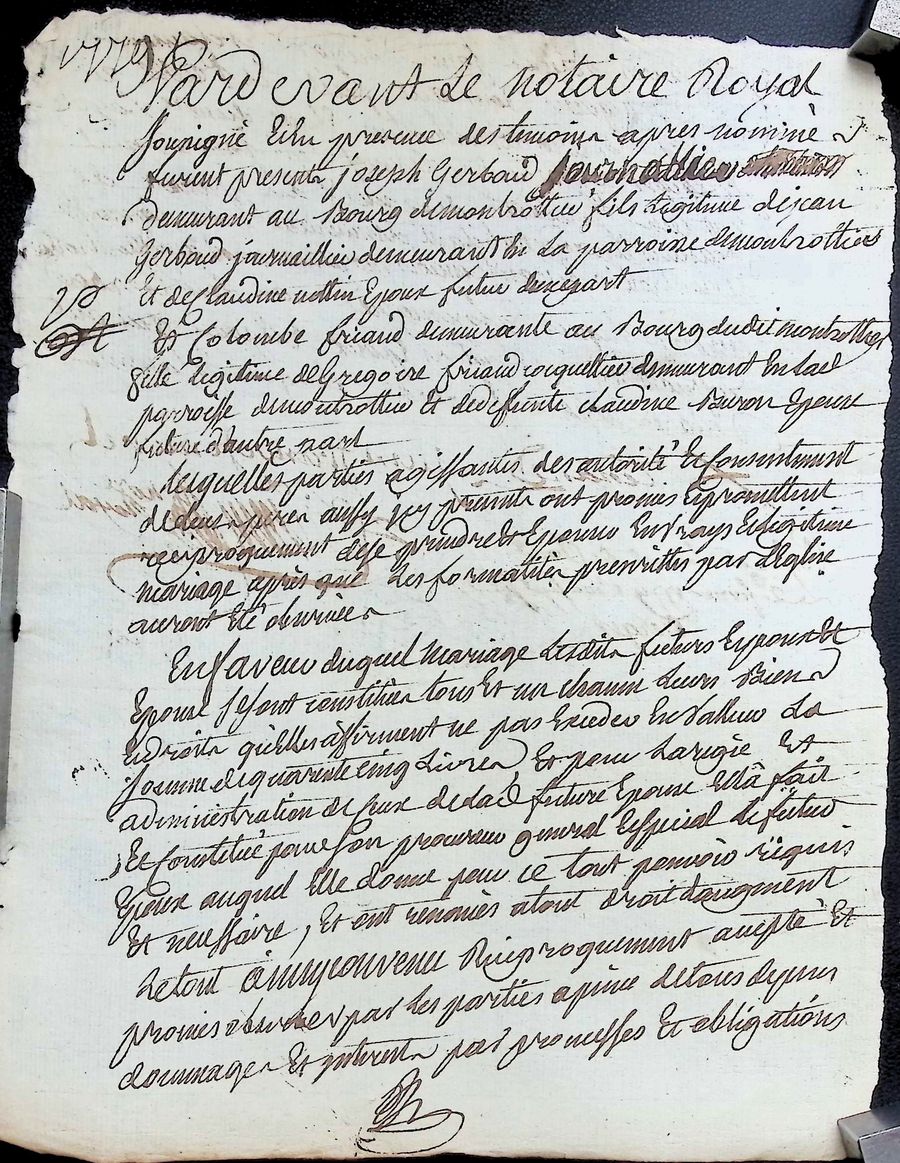 1779
Pardevant Le notaire Royal
sousigné Et En presence des temoins apres nommés
furent presents joseph Gerbaud journallier
demeurant au Bourg de montrottier fils legitime de jean
Gerbaud journallier demeurant En La parroisse de montrottier
Et de Claudine nottin Epoux futur d'une part
Et Colombe friaud demeurante au Bourg dudit montrottier
fille legitime de Gregoire friaud coquellier demeurant En lad
parroisse de montrottier Et de deffunte claudine Buron Epouse
future d'autre part
lesquelles parties agissantes des autorité Et Consentement
de leurs peres aussy icy presents ont promis Et promettent
reciproquement de se prendre Et Epouser En vrays Et legitime
mariage après que les formalités prescrittes par L'Eglise
auront Eté observées
En faveur duquel mariage Lesdits futurs Epoux Et
Epouse se sont constitués tous Et un chacun Leurs Biens
Et droits qu'elles affirment ne pas Exceder En valleur La
somme de quarente cinq Livres, Et pour La regie Et
administration de Ceux de lad future Epouse Elle a fait
Et Constitué pour son procureur general Et special le futur
Epoux auquel Elle donne pour ce tout pouvoir requis
Et necessaire, Et ont renoncés a tout droit d'augment
Le tout ainsy convenu Reciproquement accepté Et
promis observer par les parties a peine de tous depens
dommages Et interets par promesses Et obligations